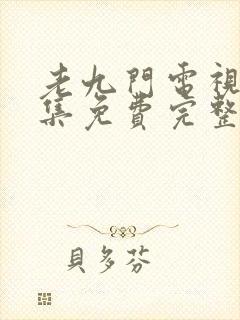 老九門電視
集免費完整
貝多芬